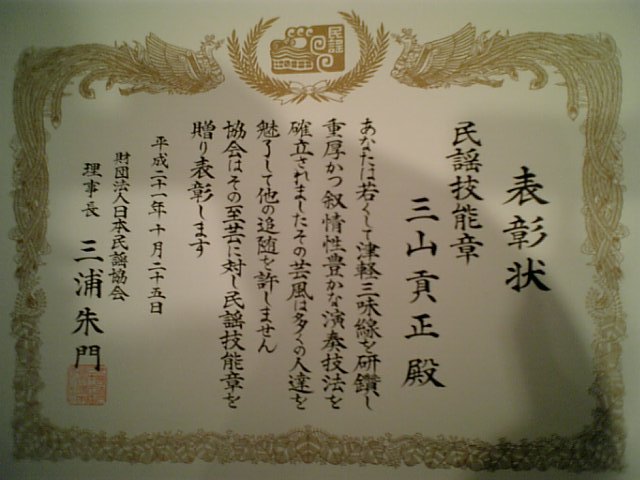 民謡
表彰状
民謡技能章
三山貢正殿
あなたは若くして津軽三味線を研鑽し
重厚かつ叙情性豊かな演奏技法を
確立されましたその芸風は多くの人達を
魅了して他の追随を許しません
協会はその至芸に対し民謡技能章を
贈り表彰します
平成二十一年十月二十五日
財団法人日本民謡協会
理事長 三浦朱門